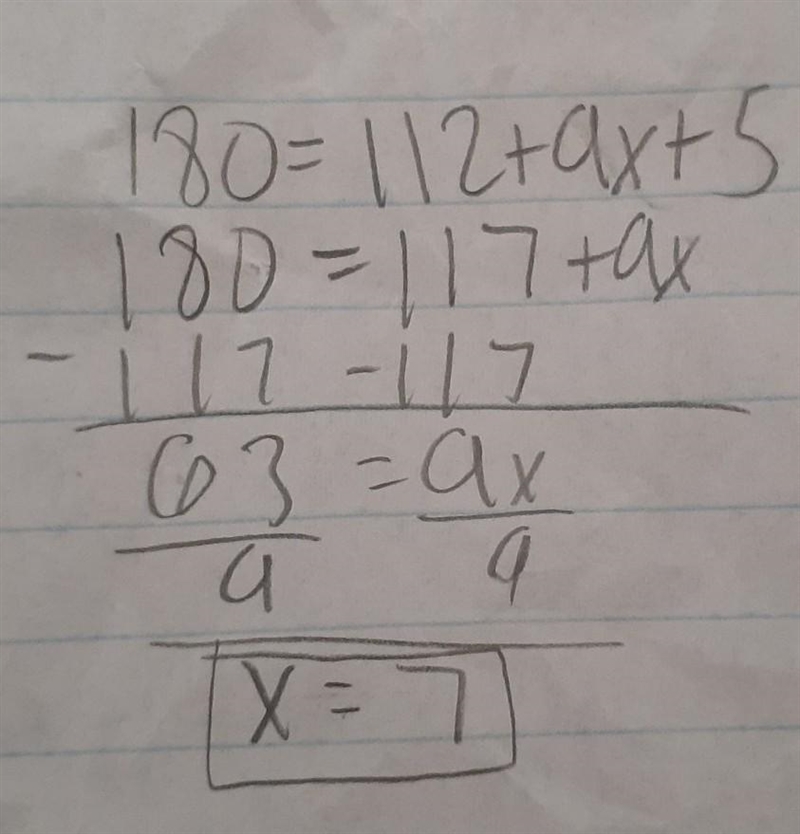 180=112+9x+5
180=117+9x
-117 -117
63=9x
9 9
x=7